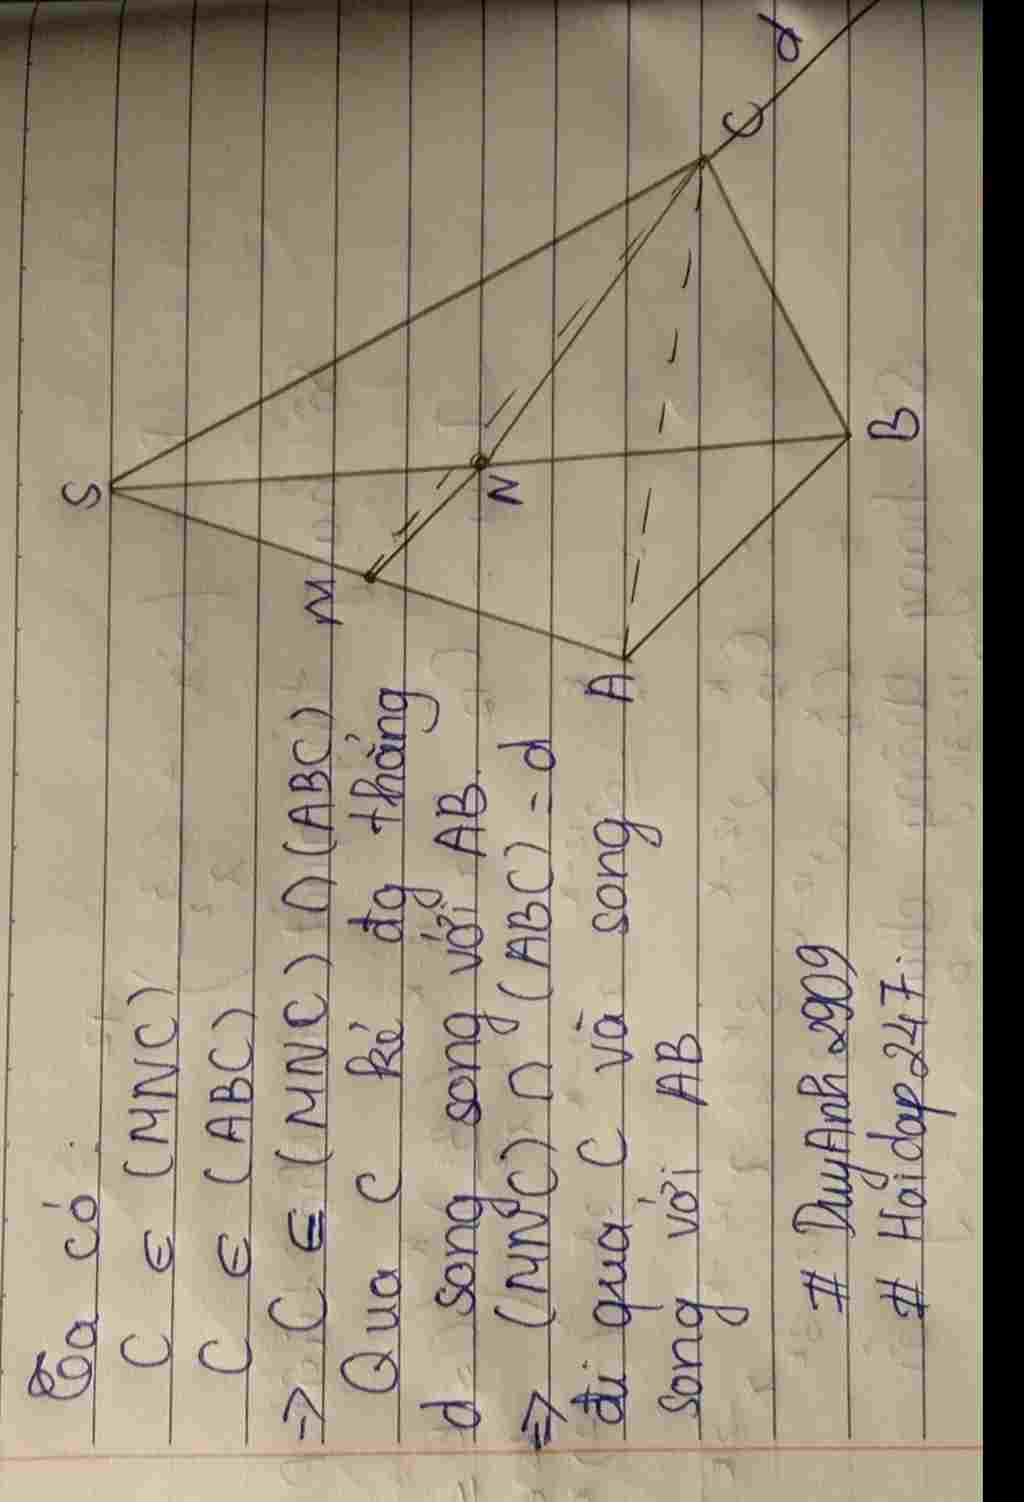 Ta có
C ∈ (MNC)
C ∈ (ABC)
=> C ∈ (MNC) ∩ (ABC)
Qua C kẻ đg thẳng
d song song với AB
=> (MNC) ∩ (ABC) = d
đi qua C và song
song với AB
# DuyAnh2909
# Hoidap247.
S
M
N
A
B
C
d